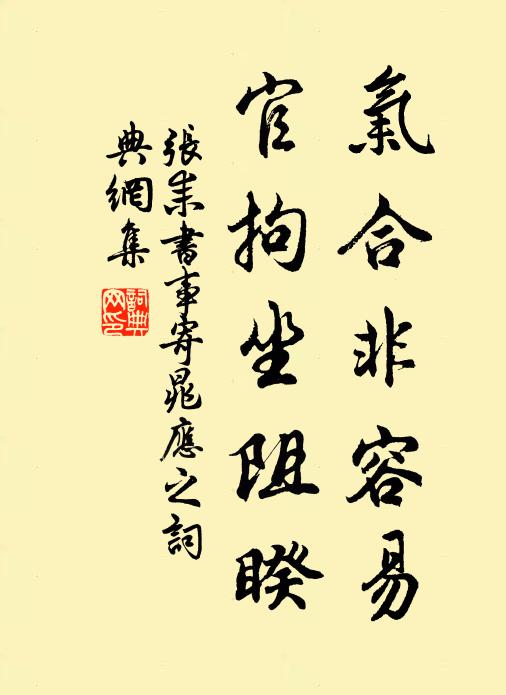 氣合非容易
官拘坐阻睽
張耒書事寄晁應之詞
典網集
詞典
網印